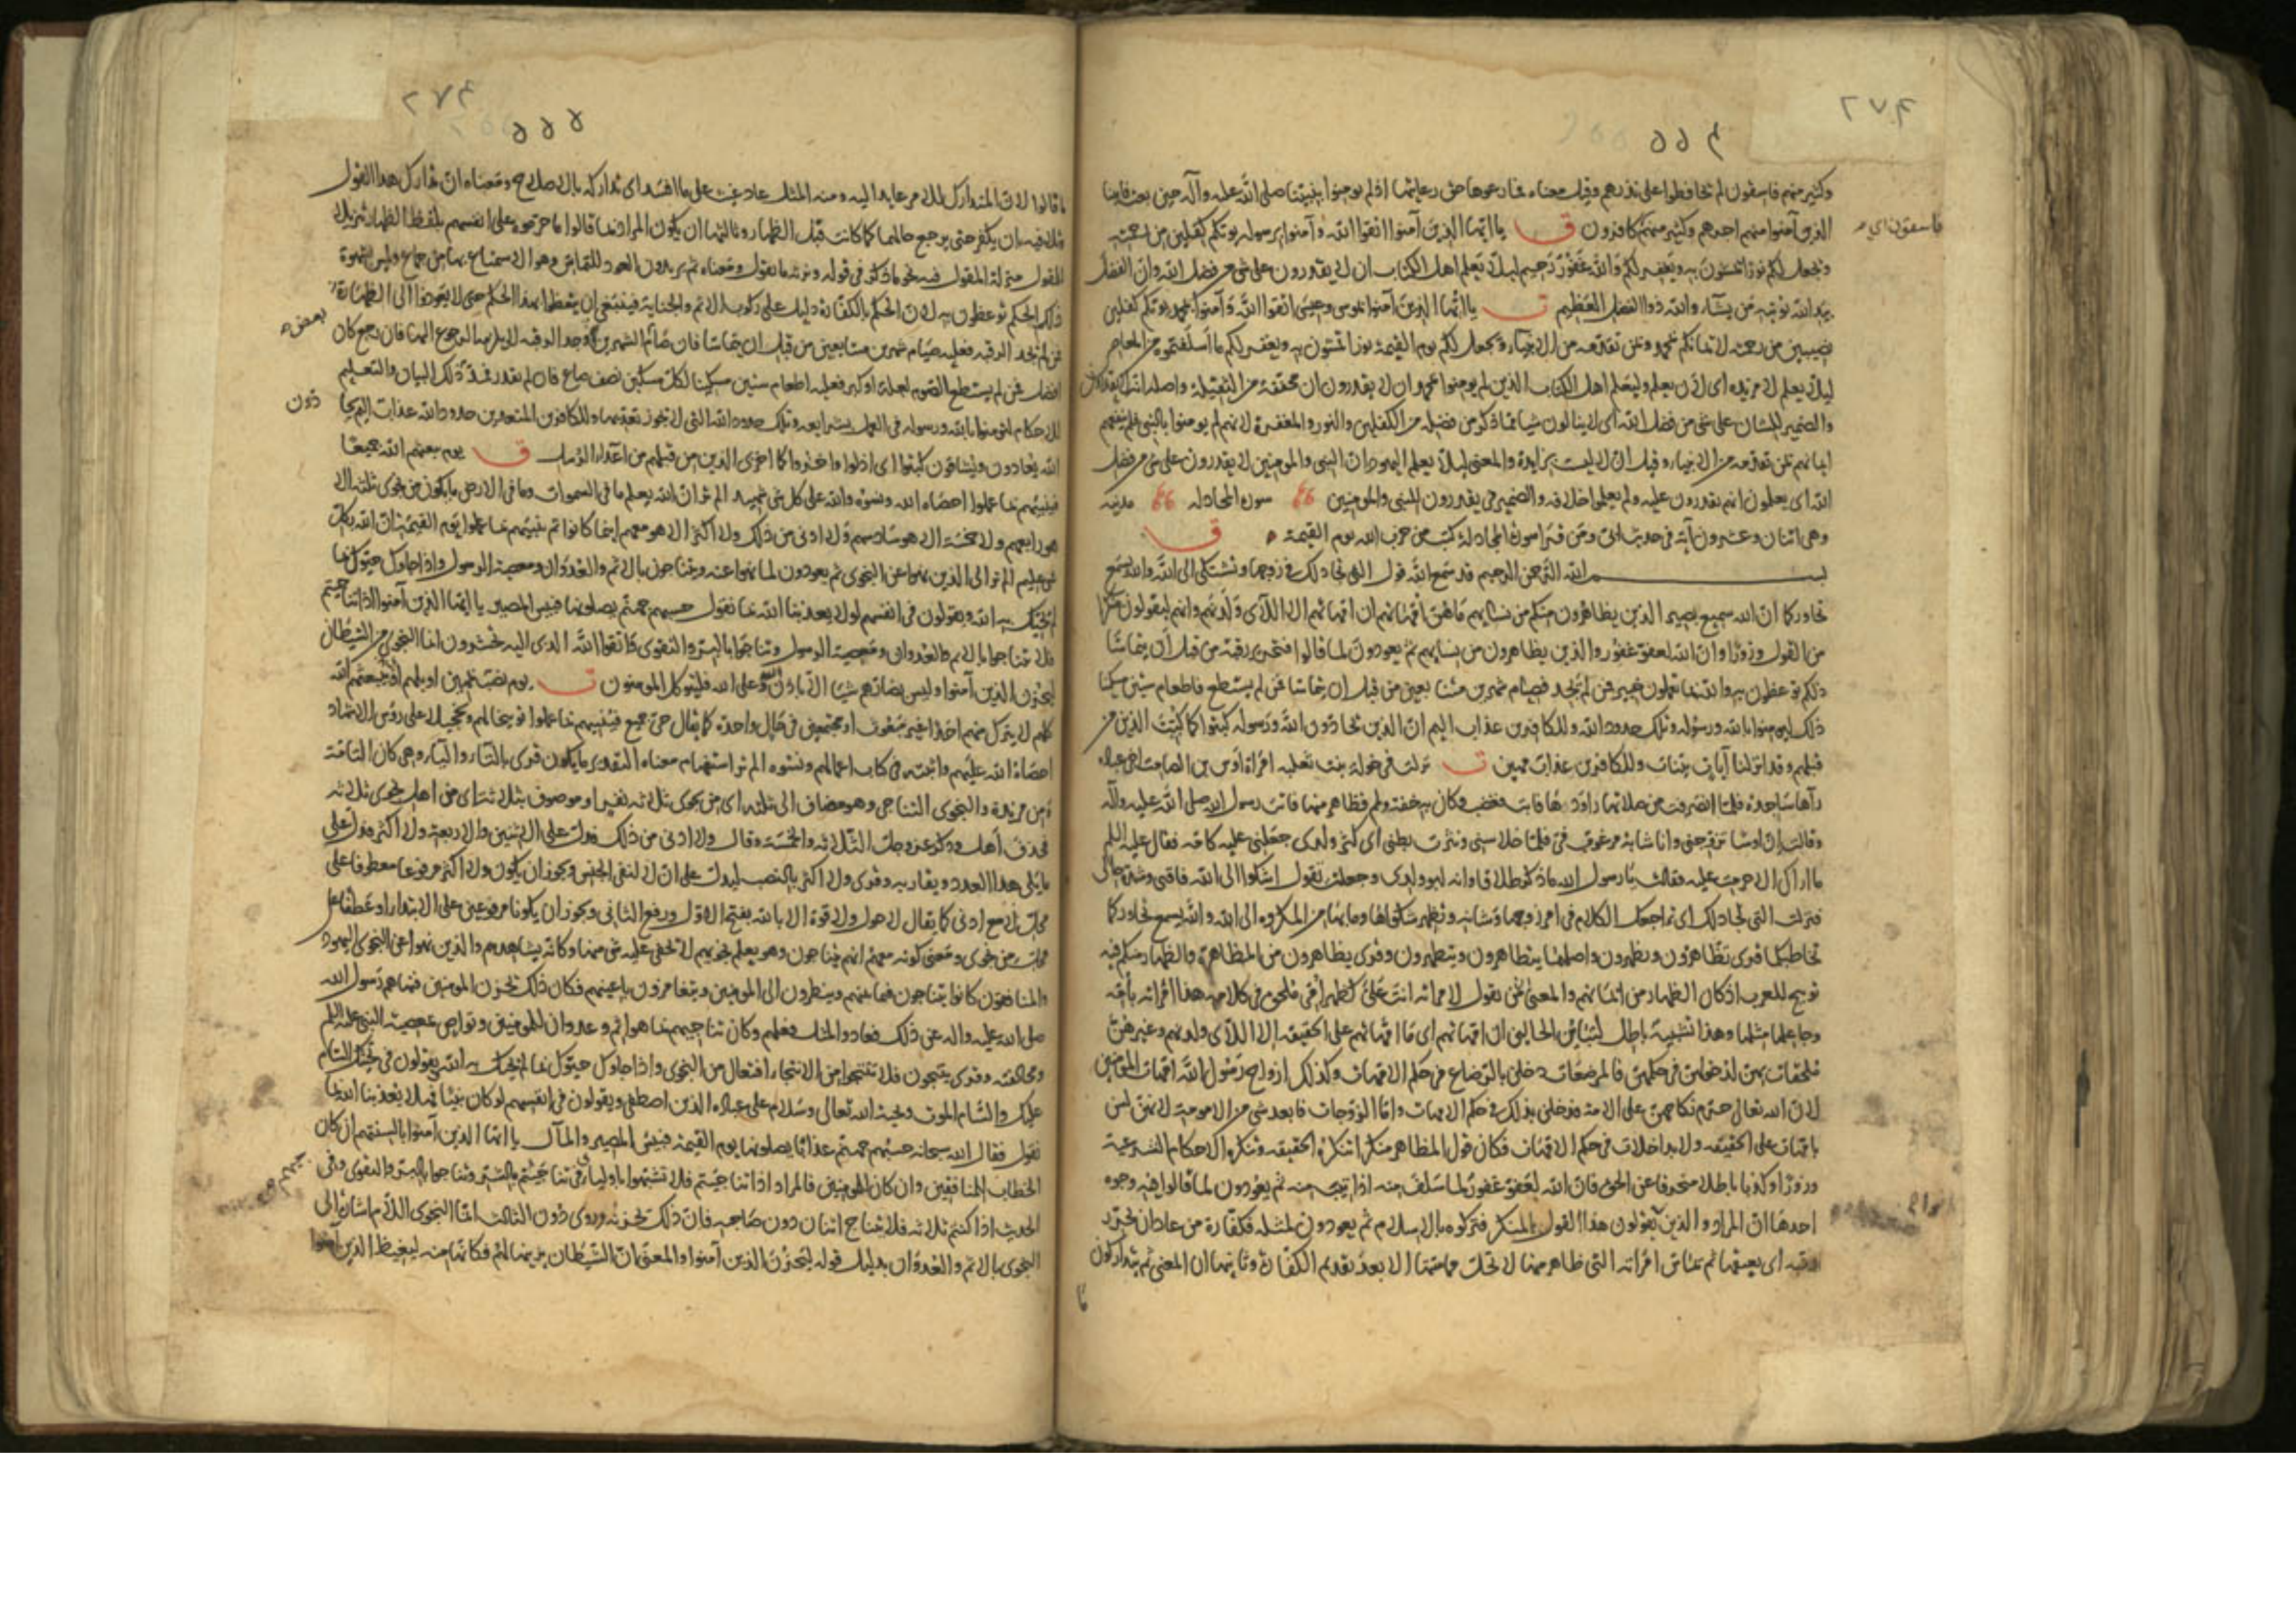 ٢٧٤
وكثير منهم فاسقون لم يحافظوا على نذرهم وقيل معناه فما رعوها حق رعايتها اذ لم يومنوا بنبينا صلى الله عليه وآله حين بعث فاتينا
الذين آمنوا منهم اجرهم وكثير منهم كافرون ق يا ايها الذين آمنوا اتقوا الله وآمنوا برسوله يوتكم كفلين من رحمته
فاسقون اى
ويجعل لكم نورا تمشون به ويغفر لكم والله غفور رحيم ليلا يعلم اهل الكتاب ان لا يقدرون على شى من فضل الله وان الفضل
بيد الله يوتيه من يشاء والله ذوا الفضل العظيم ت يا ايها الذين آمنوا بموسى وعيسى اتقوا الله وآمنوا بمحمد يوتكم كفلين
نصيبين من رحمته لايمانكم بمحمد وبمن تقدمه من الانبياء ويجعل لكم يوم القيمة نورا تمشون به ويغفر لكم ما اسلفتموه من المعاصى
ليلا يعلم لا مزيده اى لان يعلم وليعلم اهل الكتاب الذين لم يومنوا بمحمد ان لا يقدرون ان مخففة من الثقيلة واصله انه لا يقدرون
والضمير للشان على شى من فضل الله اى لا ينالون شيا مما ذكر من فضله من الكفلين والنور والمغفرة لانهم لم يومنوا بالنبى فلم ينفعهم
ايمانهم بمن تقدمه من الانبياء وقيل ان لا ليست بزايدة والمعنى ليلا يعلم اليهود ان النبى والمومنين لا يقدرون على شى من فضل
الله اى يعلمون انهم يقدرون عليه ولم يعلموا خلافه والضمير فى يقدرون للنبى والمومنين سورة المجادلة مدنية
وهى اثنان وعشرون آية فى حديث ابى ومن قرا سورة المجادلة كتب من حزب الله يوم القيمة ق
بسم الله الرحمن الرحيم قد سمع الله قول التى تجادلك فى زوجها وتشتكى الى الله والله يسمع
تحاوركما ان الله سميع بصير الذين يظاهرون منكم من نسايهم ما هن امهاتهم ان امهاتهم الا اللائى ولدنهم وانهم ليقولون منكرا
من القول وزورا وان الله لعفو غفور والذين يظاهرون من نسايهم ثم يعودون لما قالوا فتحرير رقبة من قبل ان يتماسا
ذلكم توعظون به والله بما تعملون خبير فمن لم يجد فصيام شهرين متتابعين من قبل ان يتماسا فمن لم يستطع فاطعام ستين مسكينا
ذلك ليومنوا بالله ورسوله وتلك حدود الله وللكافرين عذاب اليم ان الذين يحادون الله ورسوله كبتوا كما كبت الذين من
قبلهم وقد انزلنا آيات بينات وللكافرين عذاب مهين ت نزلت فى خولة بنت ثعلبة امراة اوس بن الصامت اخى عبادة
رآها ساجدة فلما انصرفت من صلاتها راودها فابت فغضب وكان به خفة ولم فظاهر منها فاتت رسول الله صلى الله عليه وآله
وقالت ان اوسا تزوجنى وانا شابة مرغوب فى فلما خلا سنى ونثرت بطنى اى كثر ولدى جعلنى عليه كامه فقال عليه السلم
ما اراك الا حرمت عليه فقالت يا رسول الله ما ذكر طلاقا وانه ابو ولدى وجعلت تقول اشكو الى الله فاقتى وشدة حالى
فنزلت التى تجادلك اى تراجعك الكلام فى امر زوجها وشانه وتظهر شكواها وما بها من المكروه الى الله والله يسمع تحاوركما
تخاطبكما قرى تظاهرون وتظهرون واصلها يتظاهرون ويتظهرون وقرى يظاهرون من المظاهرة والظهار منكم فيه
توبيخ للعرب اذ كان الظهار من ايمانهم والمعنى من يقول لامراته انت على كظهر امى ملحق فى كلامه هذا امراته بامه
وجاعلها مثلها وهذا تشبيه باطل لتباين الحالين ان امهاتهم اى ما امهاتهم على الحقيقة الا اللائى ولدنهم وغيرهن
ملحقات بهن لدخولهن فى حكمهن فالمرضعات دخلن بالرضاع فى حكم الامهات وكذلك ازواج رسول الله امهات المومنين
لان الله تعالى حرم نكاحهن على الامة فدخلن بذلك فى حكم الامهات واما الزوجات فابعد شى من الامومة لانهن لسن
بامهات على الحقيقة ولا بداخلات فى حكم الامهات فكان قول المظاهر منكرا تنكره الحقيقة وتنكره الاحكام الشرعية
وزورا وكذبا باطلا منحرفا عن الحق فان الله لعفو غفور لما سلف منه اذا تيب منه ثم يعودون لما قالوا فيه وجوه
احدها ان المراد والذين يقولون هذا القول المنكر فتركوه بالاسلام ثم يعودون لمثله فكفارة من عاد ان يحرر
رقبة اى يعتقها ثم يماس امراته التى ظاهر منها لا تحل مماستها الا بعد تقديم الكفارة وثانيها ان المعنى ثم يتداركون
ما
٢٧٤
٥٥٥
ما قالوا لان المتدارك للامر عايد اليه ومنه المثل عاد غيث على ما افسد اى تداركه بالاصلاح ومعناه ان تدارك هذا القول
وتلافيه بان يكفر حتى يرجع حالهما كما كانت قبل الظهار وثالثها ان يكون المراد بما قالوا ما حرموه على انفسهم بلفظ الظهار تنزيلا
للقول منزلة المقول فيه نحو ما ذكر فى قوله ونرثه ما يقول ومعناه ثم يريدون العود للتماس وهو الاستمتاع بها من جماع ولمس بشهوة
ذلك الحكم توعظون به لان الحكم بالكفارة دليل على ركوب الاثم والجناية فينبغى ان يتعظوا بهذا الحكم حتى لا يعودوا الى الظهار
فمن لم يجد الرقبة فعليه صيام شهرين متتابعين من قبل ان يتماسا فان صام الشهرين ووجد الرقبة لا يلزمه الرجوع اليها فان رجع كان
بعض
افضل فمن لم يستطع الصوم لعلة او كبر فعليه اطعام ستين مسكينا لكل مسكين نصف صاع فان لم يقدر فمد ذلك البيان والتعليم
للاحكام لتومنوا بالله ورسوله فى العمل بشرايعه وتلك حدود الله التى لا تجوز تعديها وللكافرين المتعدين حدود الله عذاب اليم
دون
الله يعادون ويشاقون كبتوا اى اذلوا واخزوا كما اخزى الذين من قبلهم من اعداء الرسل ق يوم يبعثهم الله جميعا
فينبئهم بما عملوا احصاه الله ونسوه والله على كل شى شهيد الم تر ان الله يعلم ما فى السموات وما فى الارض ما يكون من نجوى ثلثة الا
هو رابعهم ولا خمسة الا هو سادسهم ولا ادنى من ذلك ولا اكثر الا هو معهم اينما كانوا ثم ينبئهم بما عملوا يوم القيمة ان الله بكل
شى عليم الم تر الى الذين نهوا عن النجوى ثم يعودون لما نهوا عنه ويتناجون بالاثم والعدوان ومعصية الرسول واذا جاوك حيوك بما
لم يحيك به الله ويقولون فى انفسهم لولا يعذبنا الله بما نقول حسبهم جهنم يصلونها فبيس المصير يا ايها الذين آمنوا اذا تناجيتم
فلا تتناجوا بالاثم والعدوان ومعصية الرسول وتناجوا بالبر والتقوى واتقوا الله الذى اليه تحشرون انما النجوى من الشيطان
ليحزن الذين آمنوا وليس بضارهم شيا الا باذن الله وعلى الله فليتوكل المومنون ت يوم نصب بمهين او بلهم اذكر يبعثهم الله
كلهم لا يترك منهم احدا غير مبعوث او مجتمعين فى حال واحدة كما يقال حى جميع فينبيهم بما عملوا توبيخا لهم وتخجيلا على رؤس الاشهاد
احصاه الله عليهم واثبته فى كتاب اعمالهم ونسوه الم تر استفهام معناه التقرير ما يكون قرى بالتاء والياء وهى كان التامة
ومن مزيدة والنجوى التناجى وهو مضاف الى ثلثة اى من نجوى ثلاثة نفر او موصوف بثلاثة اى من اهل نجوى ثلاثة
فحذف اهل وذكر عز وجل الثلاثة والخمسة وقال ولا ادنى من ذلك فدل على الاثنين والاربعة ولا اكثر فدل على
ما يلى هذا العدد ويقاربه وقرى ولا اكثر بالنصب ليدل على ان لا لنفى الجنس ويجوز ان يكون ولا اكثر مرفوعا معطوفا على
محل لا مع ادنى كما يقال لا حول ولا قوة الا بالله بفتح الاول ورفع الثانى ويجوز ان يكونا مرفوعين على الابتداء او عطفا على
محل من نجوى ومعنى كونه معهم انهم يتناجون وهو يعلم نجويهم لا تخفى عليه شى منها وكانه يشاهدهم والذين نهوا عن النجوى اليهود
والمنافقون كانوا يتناجون فيما بينهم وينظرون الى المومنين ويتغامزون باعينهم فكان ذلك يحزن المومنين فنهاهم رسول الله
صلى الله عليه واله عن ذلك فعادوا لمثل فعلهم وكان تناجيهم بما هو اثم وعدوان للمومنين وتواص بمعصية النبى عليه السلم
ومخالفته وقرى ينتجون فلا تنتجوا من الانتجاء افتعال من النجوى واذا جاوك حيوك بما لم يحيك به الله يقولون فى تحيتك السام
عليك والسام الموت وتحية الله تعالى وسلام على عباده الذين اصطفى ويقولون فى انفسهم لو كان نبيا فهلا يعذبنا الله بما
نقول فقال الله سبحانه حسبهم جهنم عذابا يصلونها يوم القيمة فبيس المصير والمآل يا ايها الذين آمنوا بالسنتهم ان كان
الخطاب للمنافقين وان كان للمومنين فالمراد اذا تناجيتم فلا تشبهوا باوليك فى تناجيهم بالشر وتناجوا بالبر والتقوى وفى
الحديث اذا كنتم ثلاثة فلا يتناج اثنان دون صاحبه فان ذلك يحزنه وروى دون الثالث انما النجوى اللام اشارة الى
النجوى بالاثم والعدوان بدليل قوله ليحزن الذين آمنوا والمعنى ان الشيطان يزينها لهم فكانها منه ليغيظ الذين آمنوا